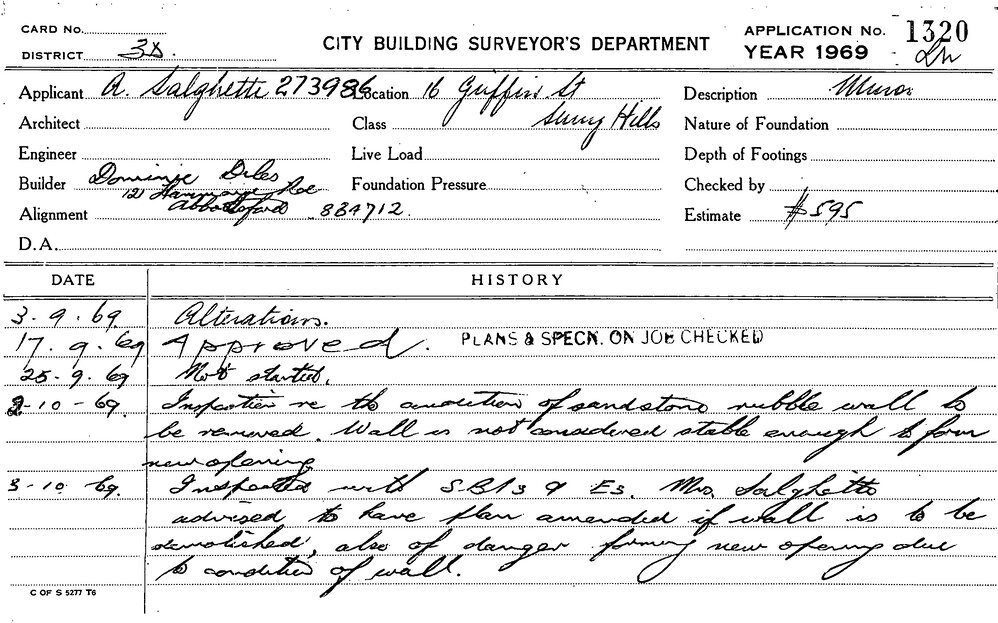 CARD No.
DISTRICT 3D.
CITY BUILDING SURVEYOR'S DEPARTMENT
APPLICATION No. 1320
YEAR 1969
Applicant A. Salghetti 273986 Location 16 Griffin St Description Minor
Architect Class Surry Hills Nature of Foundation
Engineer Live Load Depth of Footings
Builder Dominic Foundation Pressure Checked by
121
Abbotsford
Alignment 834712. Estimate $595
D.A.
DATE HISTORY
3.9.69. Alterations.
17.9.69 Approved. PLANS & SPECN. ON JOB CHECKED
25-9.69 Not started.
2-10-69. Inspection re the condition of sandstone rubble wall to
be removed. Wall is not considered stable enough to form
new opening
3-10.69. Inspected with S.B.I's & Es. Mrs. Salghetti
advised to have plan amended if wall is to be
demolished, also of danger forming new opening due
to condition of wall.
C OF S 5277 T6